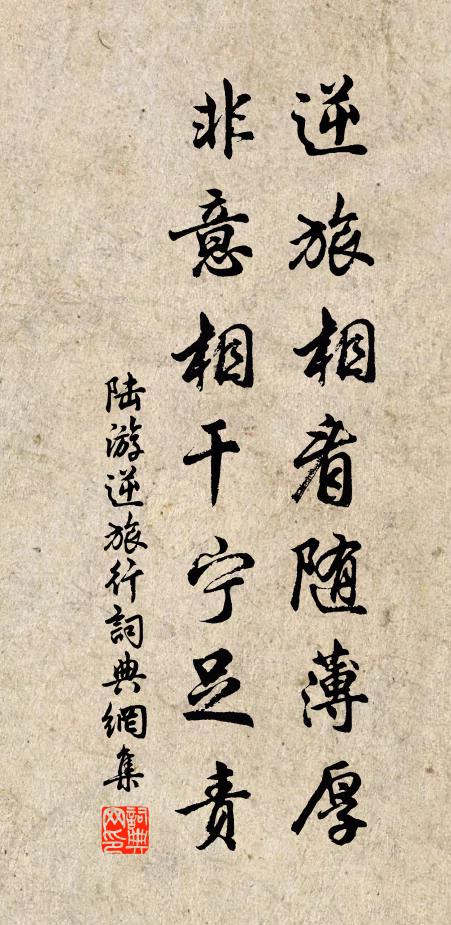 逆旅相看随薄厚
非意相干宁足责
陆游逆旅行詞典網集
詞典网印